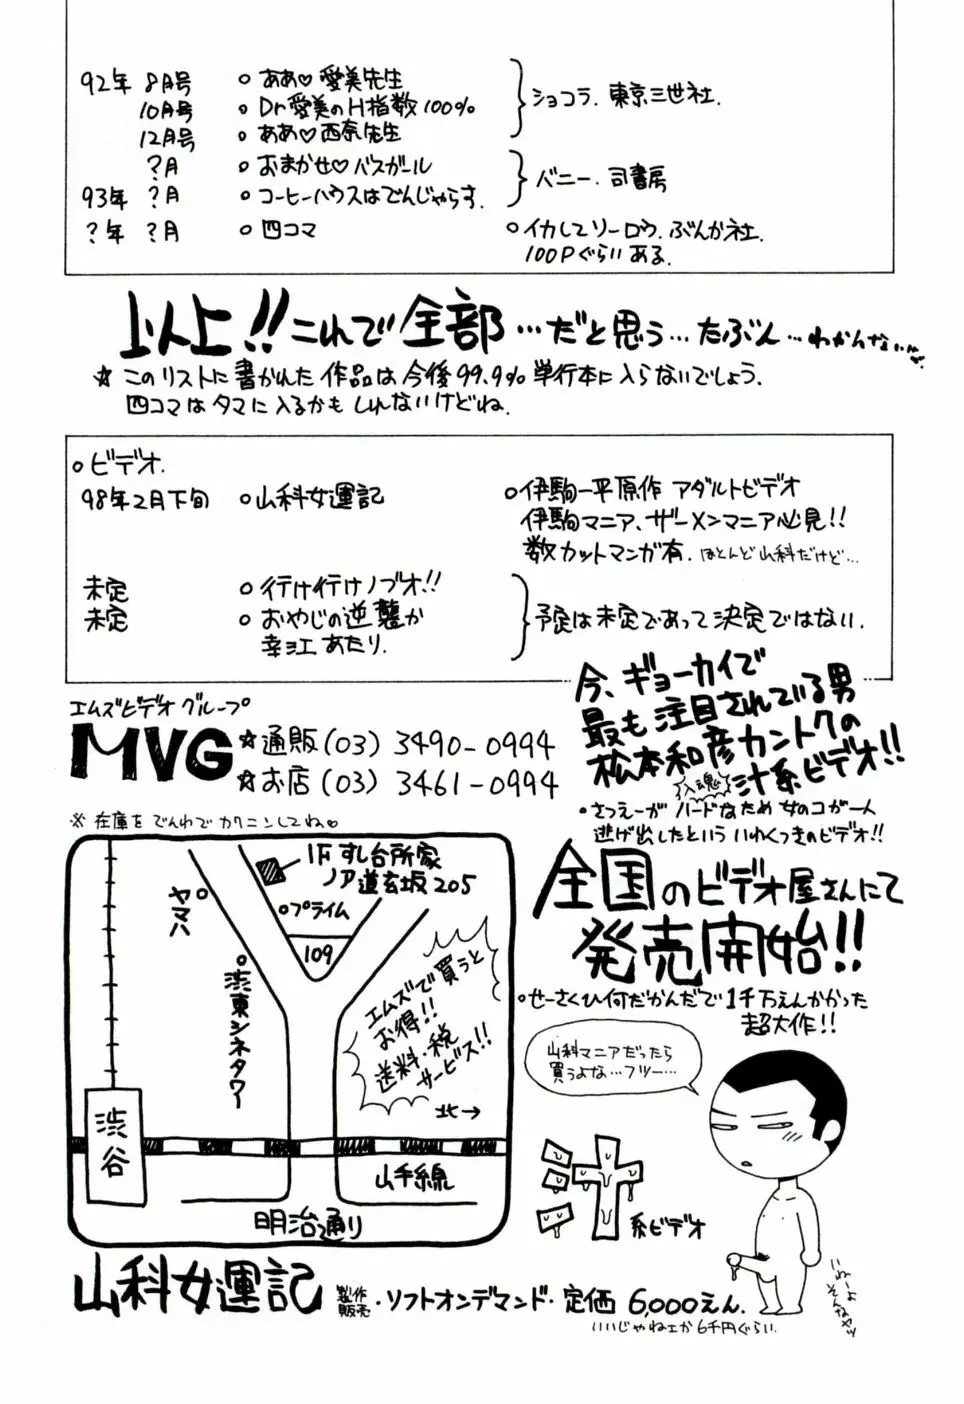 92年 8月号 ○ああ♡愛美先生
10月号 ○Dr愛美のH指数100%
12月号 ○ああ♡西奈先生
ショコラ. 東京三世社.
?月 ○おまかせ♡バスガール
93年 ?月 ○コーヒーハウスはでんじゃらす.
バニー. 司書房
?年 ?月 ○四コマ ○イカしてソーロウ. ぶんか社.
100Pぐらいある.
以上!! これで全部…だと思う…たぶん…わかんないけど
☆このリストに書かれた作品は今後99.9%単行本に入らないでしょう.
四コマはタマに入るかもしれないけどね.
○ビデオ.
98年2月下旬 ○山科女運記 ○伊駒一平原作 アダルトビデオ
伊駒マニア、ザーメンマニア必見!!
数カットマンガ有. ほとんど山科だけど…
未定 ○行け行けノブオ!!
未定 ○おやじの逆襲か
幸江あたり.
予定は未定であって決定ではない.
エムズビデオグループ
MVG ☆通販(03) 3490-0994
☆お店(03) 3461-0994
※在庫をでんわでカクニンしてね♡
今、ギョーカイで
最も注目されている男
松本和彦カントクの
入魂 汁系ビデオ!!
・さつえーがハードなため女のコが一人
逃げ出したといういわくつきのビデオ!!
全国のビデオ屋さんにて
発売開始!!
○せーさくひ何だかんだで1千万えんかかった
超大作!!
1Fすし台所家
ノア道玄坂205
○プライム
109
ヤマハ
○渋東シネタワー
エムズで買うと
お得!!
送料・税
サービス!!
北→
渋谷
山手線
明治通り
山科マニアだったら
買うよな…フツー…
汁系ビデオ
いねーよ
そんなヤツ
山科女運記 製作・販売・ソフトオンデマンド・定価 6,000えん.
いいじゃねェか6千円ぐらい.